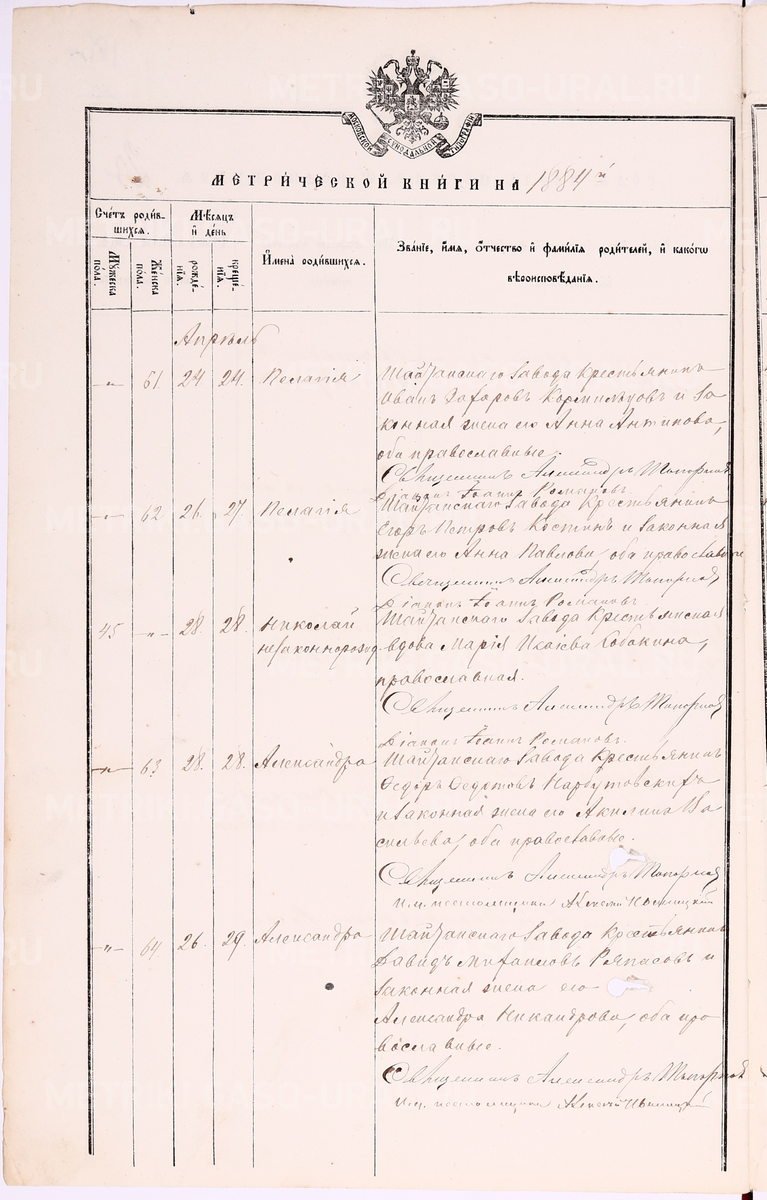 МОСКОВСКОЙ СИНОДАЛЬНОЙ ТИПОГРАФІИ
МЕТРИ́ЧЕСКОЙ КНИ́ГИ НА 1884 й
Сче́тъ роди́в-
шихся.
Мѣ́сяцъ
и де́нь
Имена̀ роди́вшихся.
Зва́ніе, и́мя, о́тчество и фами́лія роди́телей, и како́гѡ
вѣроисповѣ́данія.
Мꙋ́жеска
по́ла.
Же́нска
по́ла.
рожде́-
нія.
креще́-
нія.
Апрѣль
-"- 61 24 24. Пелагія Шайтанскаго Завода Крестьянинъ
Иванъ Захаровъ Кормильцовъ и За
конная жена его Анна Антипова,
оба православные.
Священникъ Александръ Топорковъ
Діаконъ Іоаннъ Романовъ
-"- 62 26. 27. Пелагія Шайтанскаго Завода Крестьянинъ
Егоръ Петровъ Костинъ и Законная
жена его Анна Павлова, оба православные
Священникъ Александръ
Діаконъ Іоаннъ Романовъ
45 -"- 28. 28. Николай Шайтанскаго Завода Крестьянская
незаконнорожд вдова Марія Исаіева Кобякина,
православная.
Священникъ Александръ
Діаконъ Іоаннъ Романовъ.
-"- 63 28. 28. Александра Шайтанскаго Завода Крестьянинъ
Ѳедоръ Ѳедотовъ Нарбутовскихъ
и Законная жена его Акилина Ва
сильева, оба православные.
Священникъ Александръ
И. д. псаломщика Алексѣй
-"- 64 26. 29. Александра Шайтанскаго Завода Крестьянинъ
Давидъ Михаиловъ Ряпасовъ и
Законная жена его
Александра Никандрова, оба пра
вославные.
Священникъ Александръ
И. д. псаломщика Алексѣй